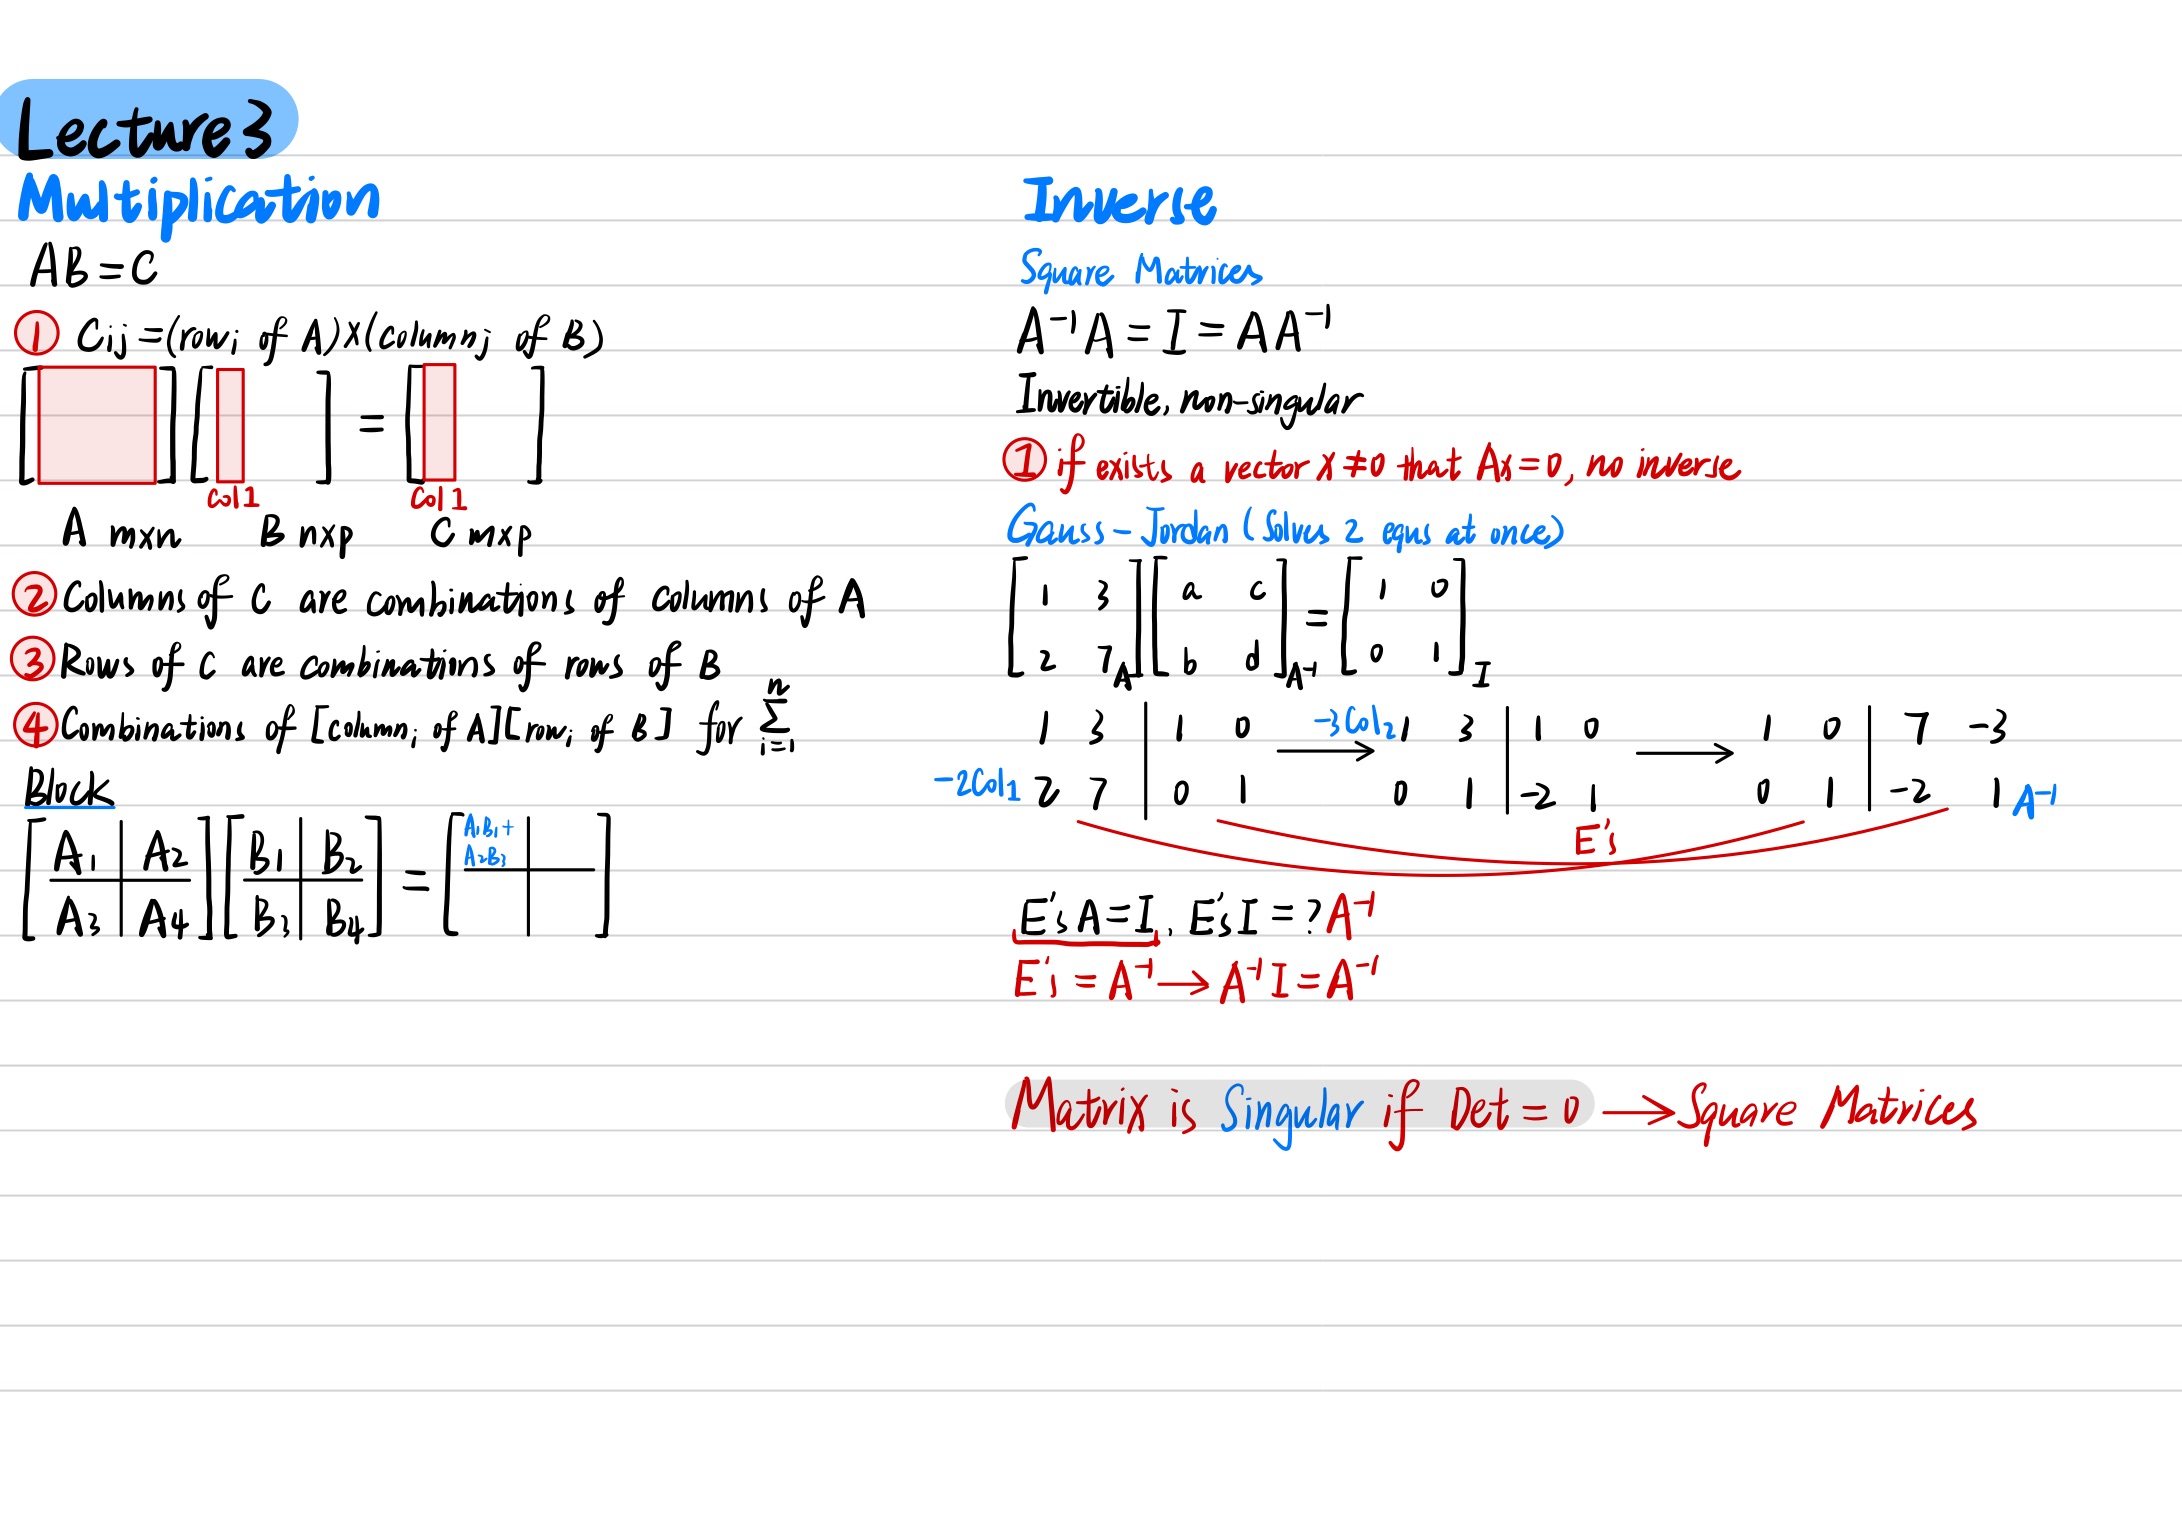 Lecture 3
Multiplication
AB = C
① Cij = (rowi of A)×(columnj of B)
[ ] [ ] = [ ]
Col1 Col1
A m×n B n×p C m×p
② Columns of C are combinations of columns of A
③ Rows of C are combinations of rows of B
④ Combinations of [columni of A][rowi of B] for ∑ i=1 n
Block
[A1 | A2] [B1 | B2] = [A1B1+ A2B3 | ]
[A3 | A4] [B3 | B4] [ | ]
Inverse
Square Matrices
A⁻¹A = I = AA⁻¹
Invertible, non-singular
① if exists a vector x ≠ 0 that Ax = 0, no inverse
Gauss-Jordan (Solves 2 equs at once)
[1 3] [a c] = [1 0]
[2 7]A [b d]A⁻¹ [0 1]I
1 3 | 1 0 → -3Col2 1 3 | 1 0 → 1 0 | 7 -3
-2Col1 2 7 | 0 1 0 1 | -2 1 0 1 | -2 1 A⁻¹
E's
E's A = I, E's I = ? A⁻¹
E's = A⁻¹ → A⁻¹ I = A⁻¹
Matrix is Singular if Det = 0 → Square Matrices